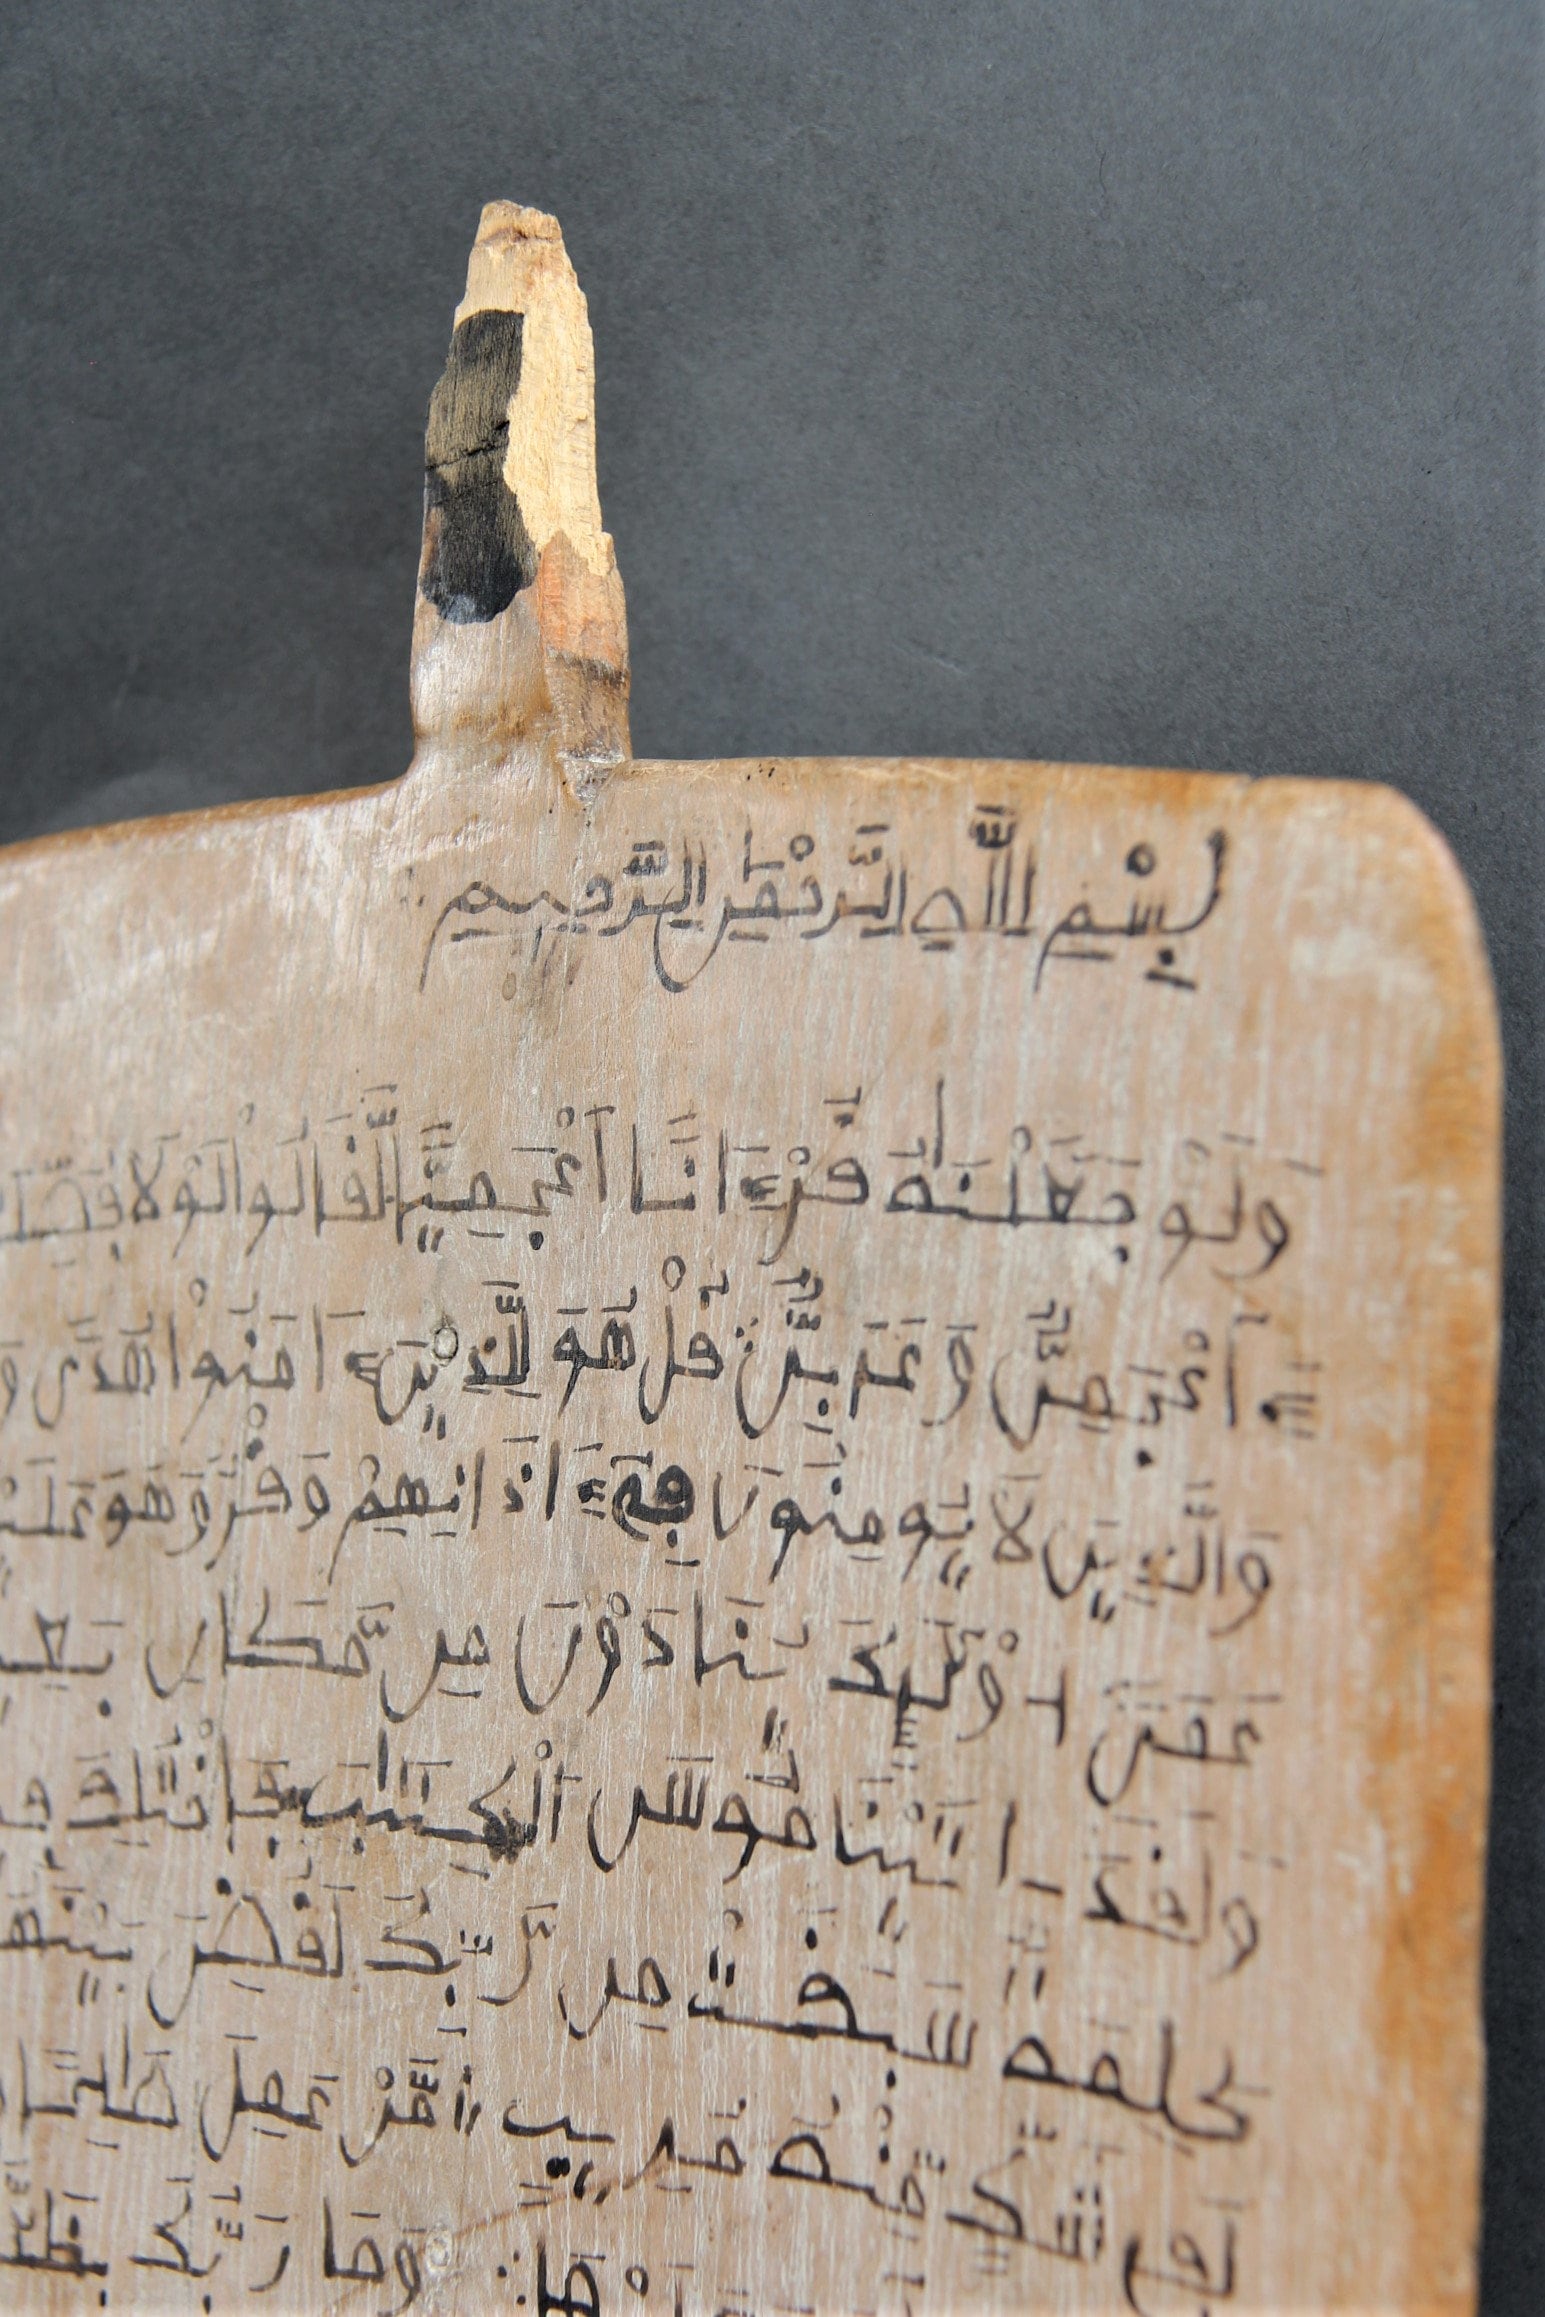 بِسْمِ اللَّهِ الرَّحْمَٰنِ الرَّحِيمِ
وَلَوْ جَعَلْنَٰهُ قُرْءَانًا اَعْجَمِيًّا لَّقَالُواْ لَوْلَا فُصِّلَ
ءَآعْجَمِيٌّ وَعَرَبِيٌّ قُلْ هُوَ لِلَّذِينَ ءَامَنُواْ هُدًى وَ
وَالَّذِينَ لَا يُومِنُونَ فِي ءَاذَانِهِمْ وَقْرٌ وَهُوَ عَلَيْ
عَمًى اُوْلَٰئِكَ يُنَادَوْنَ مِن مَّكَانٍ بَعِي
وَلَقَدَ اتَيْنَا مُوسَى الْكِتَٰبَ فَاخْتُلِفَ فِ
كَلِمَةٌ سَبَقَتْ مِن رَّبِّكَ لَقُضِيَ بَيْنَهُ
لَفِي شَكٍّ مِّنْهُ مُرِيبٍ مَّنْ عَمِلَ صَٰلِحًا
وَمَا رَبُّكَ بِظَلَّ